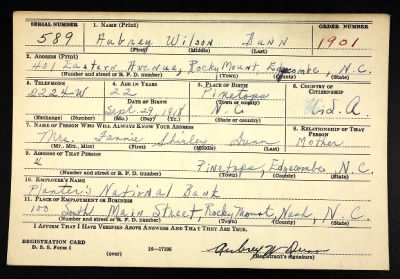 SERIAL NUMBER 1. NAME (Print) ORDER NUMBER
589 Aubrey Wilson Dunn 1901
(First) (Middle) (Last)
2. ADDRESS (Print)
401 Eastern Avenue, Rocky Mount, Edgecombe N.C.
(Number and street or R. F. D. number) (Town) (County) (State)
3. TELEPHONE 4. AGE IN YEARS 5. PLACE OF BIRTH 6. COUNTRY OF CITIZENSHIP
2224-W 22 Pinetops
DATE OF BIRTH (Town or county)
Sept. 29, 1918 N.C. U.S.A.
(Exchange) (Number) (Mo.) (Day) (Yr.) (State or country)
7. NAME OF PERSON WHO WILL ALWAYS KNOW YOUR ADDRESS 8. RELATIONSHIP OF THAT PERSON
Mrs. Fannie Shirley Dunn Mother
(Mr., Mrs., Miss) (First) (Middle) (Last)
9. ADDRESS OF THAT PERSON
Pinetops, Edgecombe N.C.
(Number and street or R. F. D. number) (Town) (County) (State)
10. EMPLOYER'S NAME
Planter's National Bank
11. PLACE OF EMPLOYMENT OR BUSINESS
100 South Main Street, Rocky Mount, Nash, N.C.
(Number and street or R. F. D. number) (Town) (County) (State)
I AFFIRM THAT I HAVE VERIFIED ABOVE ANSWERS AND THAT THEY ARE TRUE.
REGISTRATION CARD
D. S. S. Form 1 (over) 16—17105 Aubrey W. Dunn
(Registrant's signature)